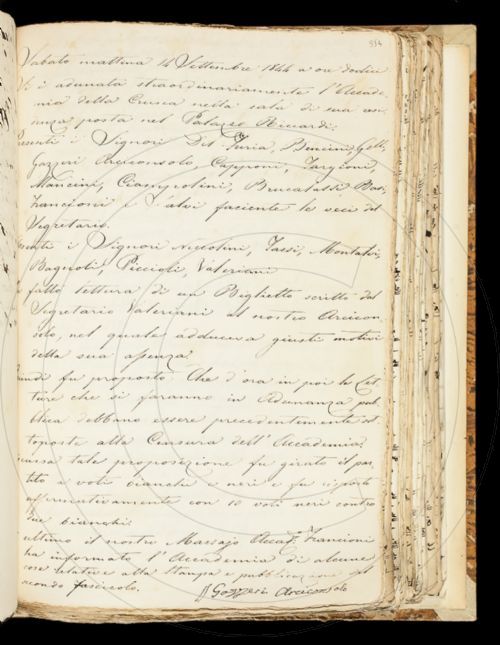 534
Sabato mattina 14 Settembre 1844 a ore dodici
si è adunata straordinariamente l'Accade-
mia della Crusca nella sala di sua resi-
denza posta nel Palazzo Riccardi.
Presenti i Signori Del Furia, Bencini, Gelli,
Gazzeri Arciconsolo, Capponi, Targioni,
Mancini, Ciampolini, Brucalassi, Basi,
Francioni e Salvi faciente le veci del
Segretario.
Assenti i Signori Niccolini, Tassi, Montalvi,
Bagnoli, Piccioli, Valeriani
fatta lettura di un Biglietto scritto dal
Segretario Valeriani al nostro Arcicon-
solo, nel quale adduceva giusti motivi
della sua assenza.
Quindi fu proposto: Che d'ora in poi le Let-
ture che si faranno in Adunanza pub-
blica debbano essere precedentemente sot-
toposte alla Censura dell'Accademia.
tale proposizione fu girato il par-
tito a voti bianchi e neri e fu riporto
affirmativamente con 10 voti neri contro
due bianchi.
ultimo il nostro Massajo Accad.º Francioni
ha informato l'Accademia di alcune
cose relative alla stampa e pubblicazione del
secondo fascicolo.
G Gazzeri Arciconsolo